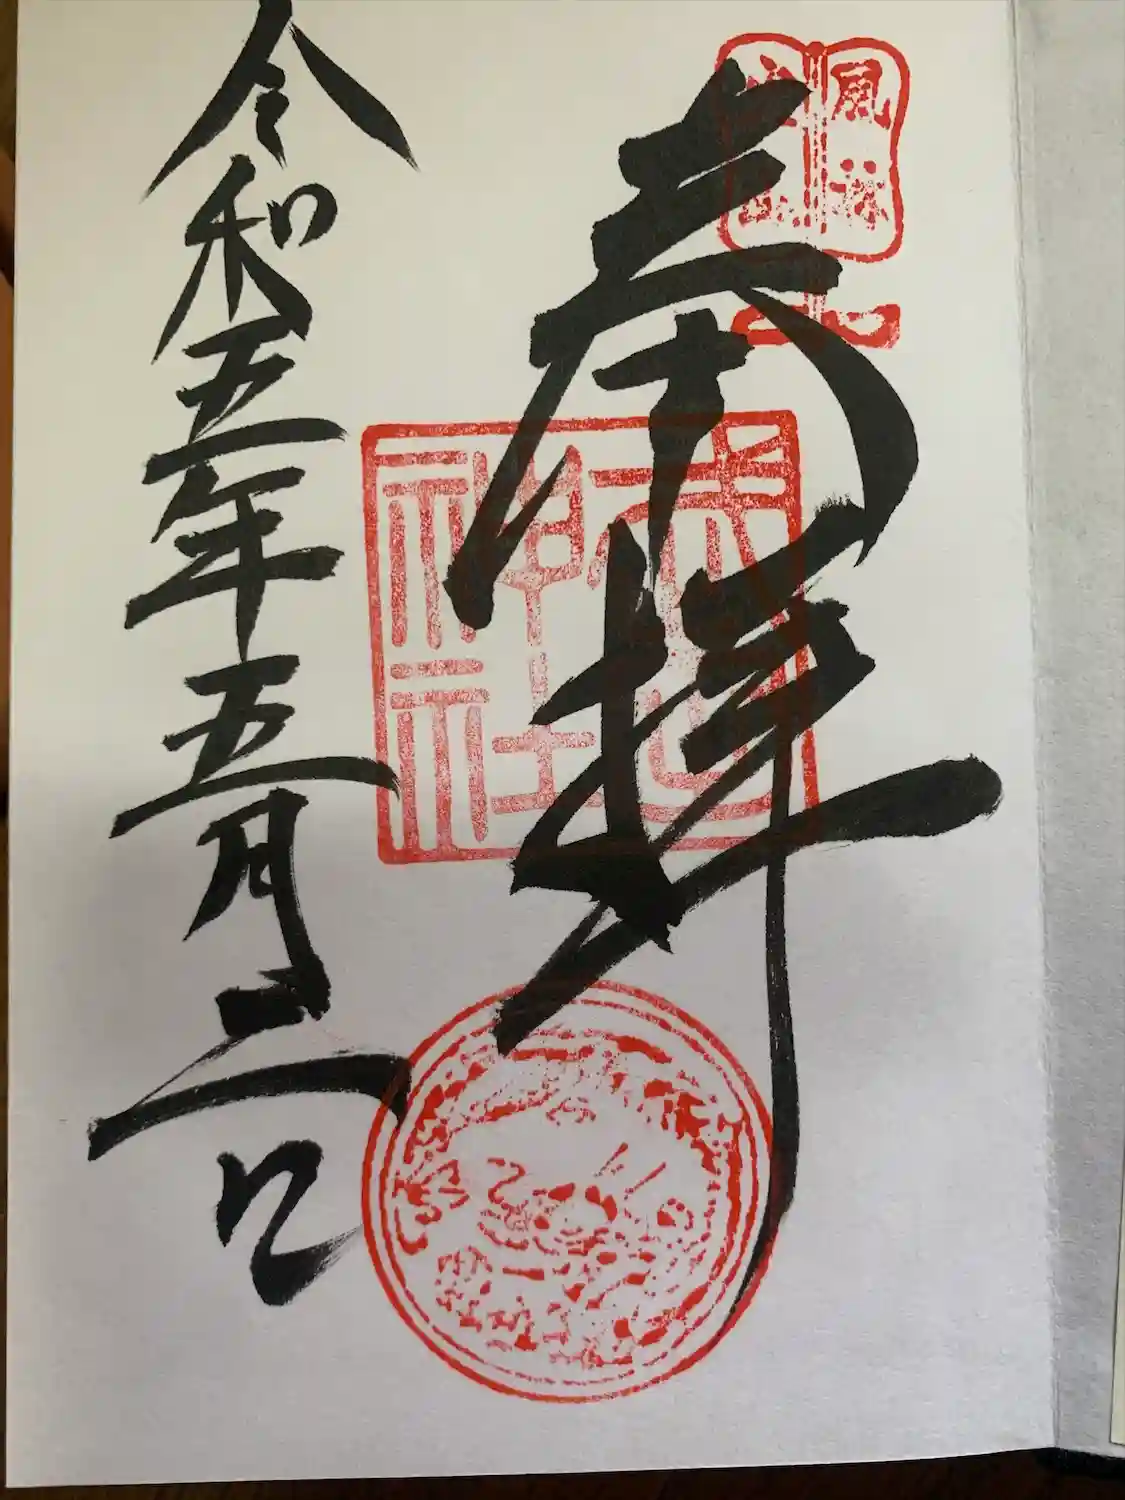 風林
火山
奉拝
神社
令和五年五月二日